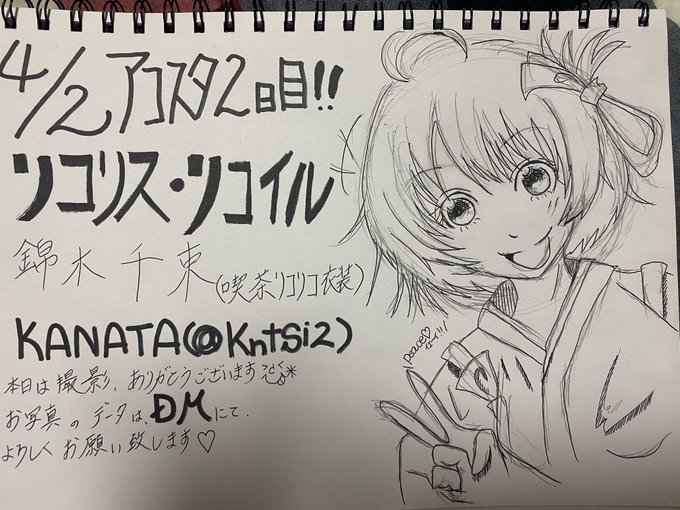 4/2 アコスタ2日目!!
リコリス・リコイル
錦木千束(喫茶リコリコ衣装)
KANATA(@KntSi2)
本日は撮影、ありがとうございます
お写真のデータは、DMにて、
よろしくお願い致します♡
peace♡